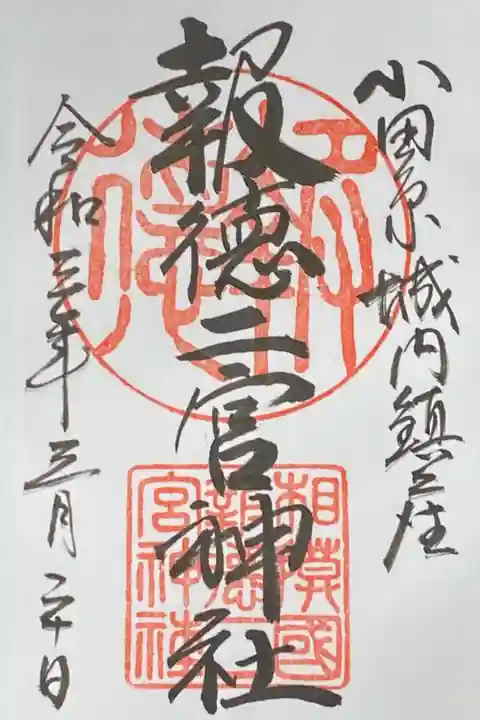 小田原城内鎮座
報徳二宮神社
令和三年三月二十日
報徳
相摸國
報徳二
宮神社